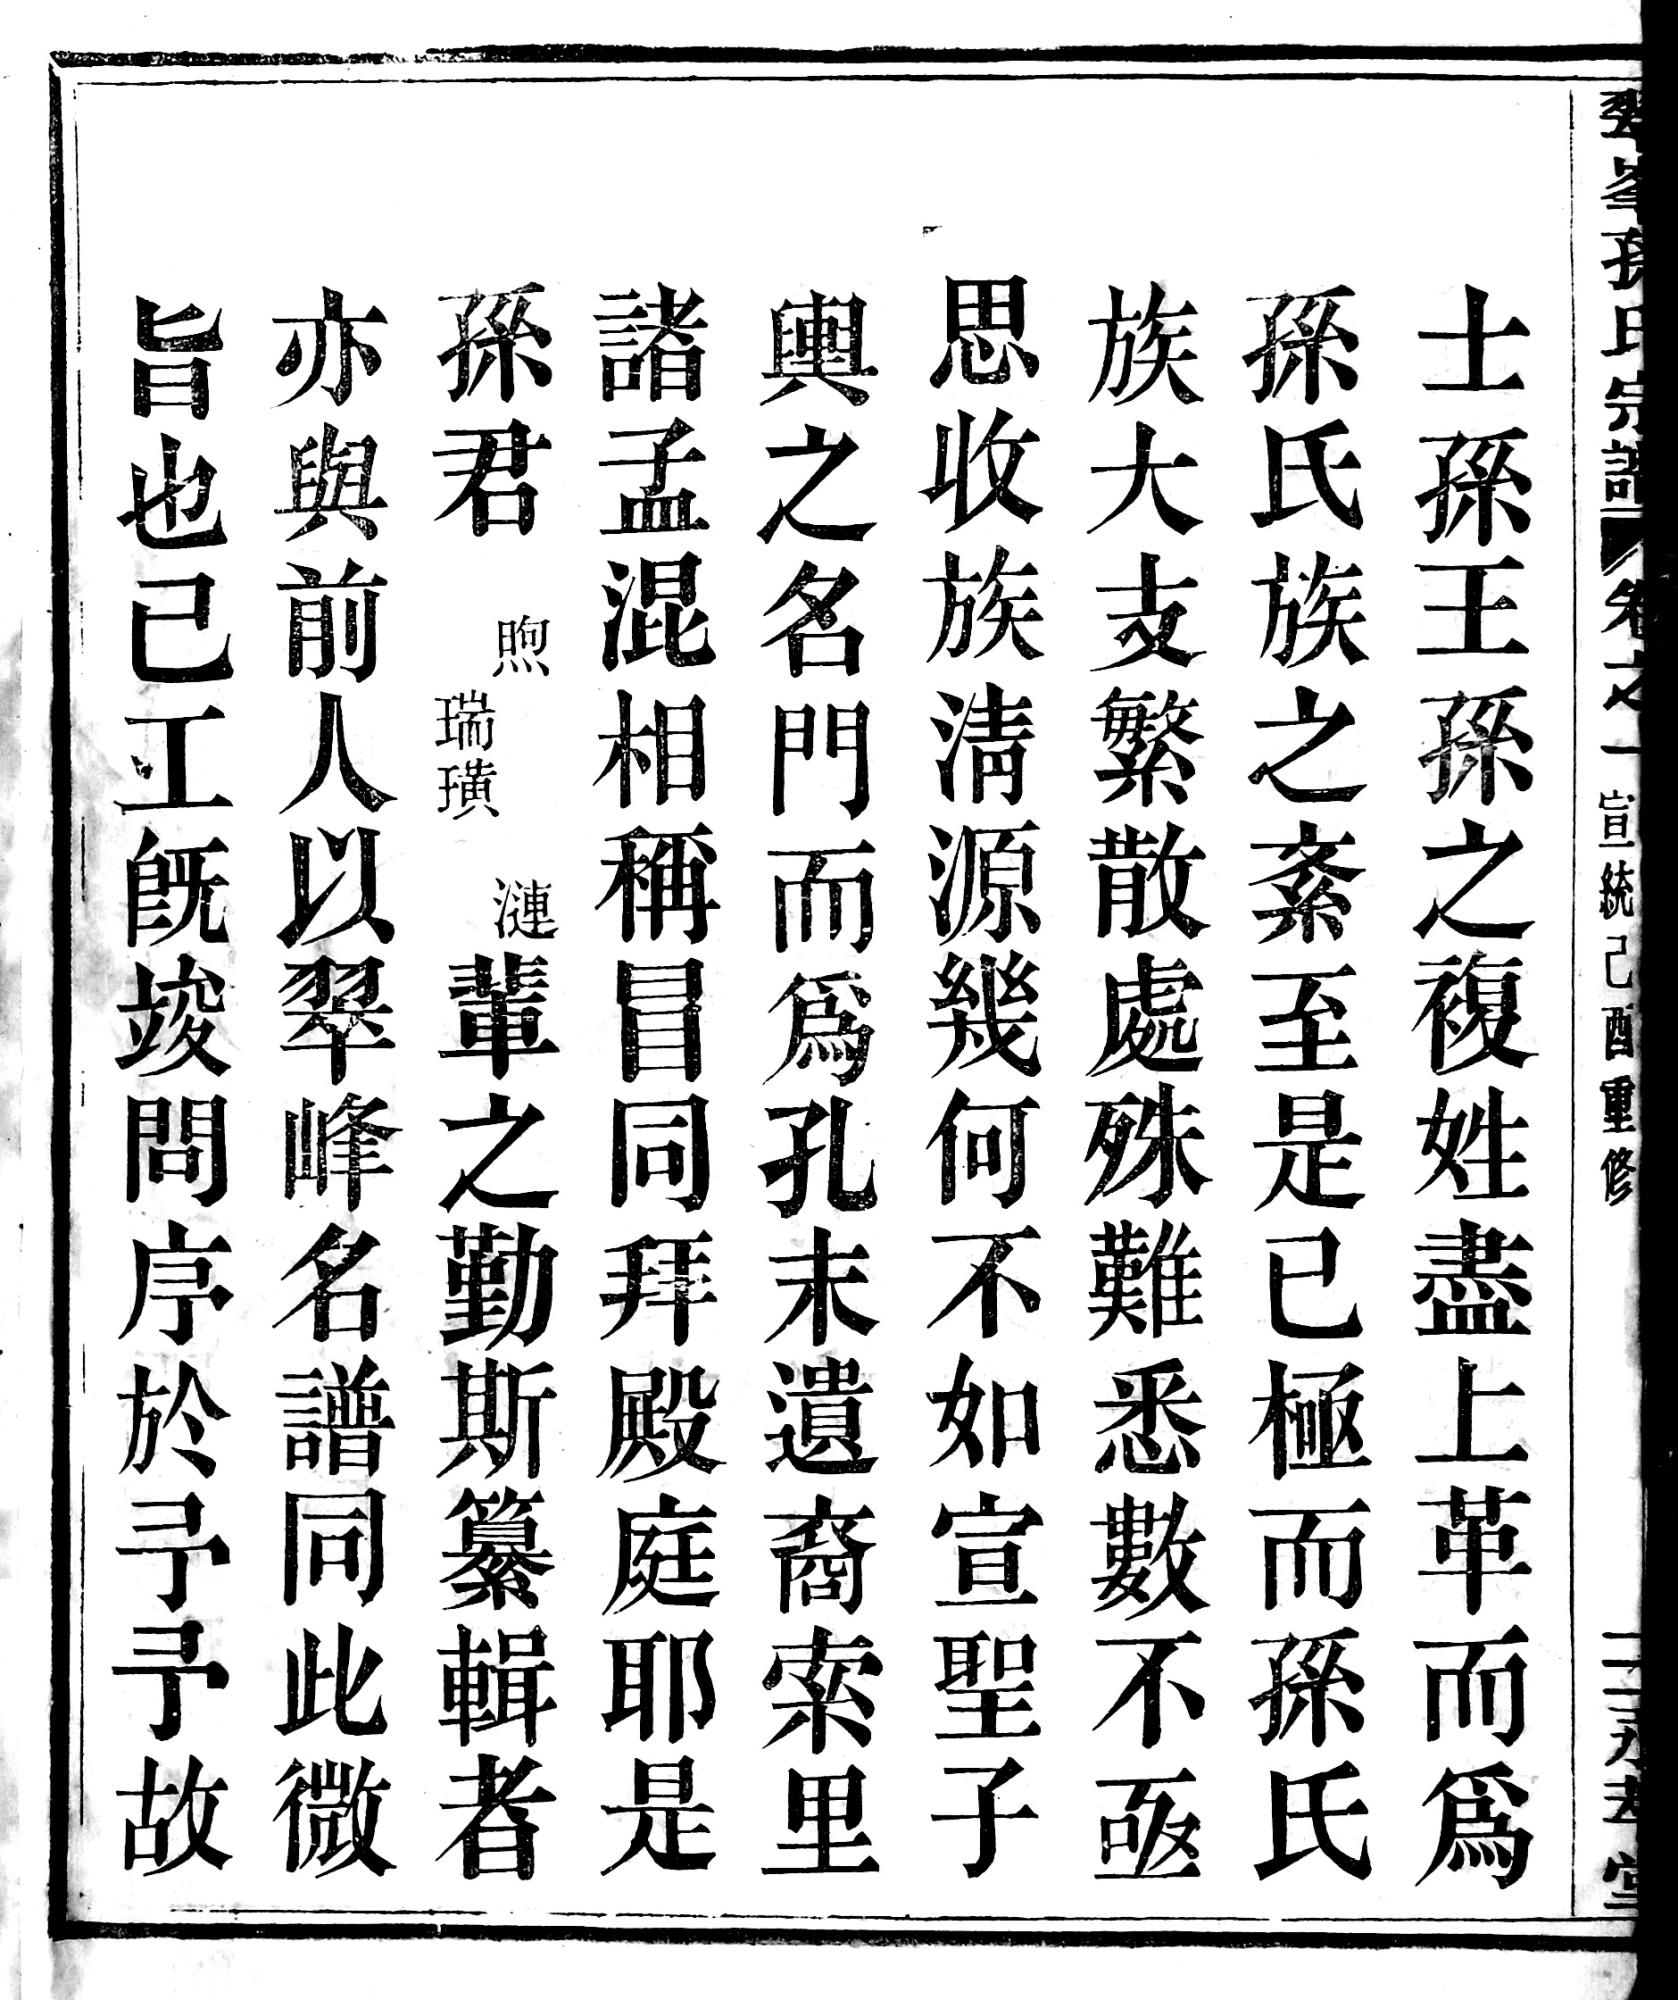 翠峯孫氏宗譜 卷之一 宣統己酉重修 二 永孝堂
士孫王孫之複姓盡上革而爲
孫氏族之紊至是已極而孫氏
族大支繁散處殊難悉數不亟
思收族淸源幾何不如宣聖子
輿之名門而爲孔末遺裔索里
諸孟混相稱冒同拜殿庭耶是
孫君煦瑞璜漣輩之勤斯纂輯者
亦與前人以翠峰名譜同此微
旨也己工旣竣問序於予予故